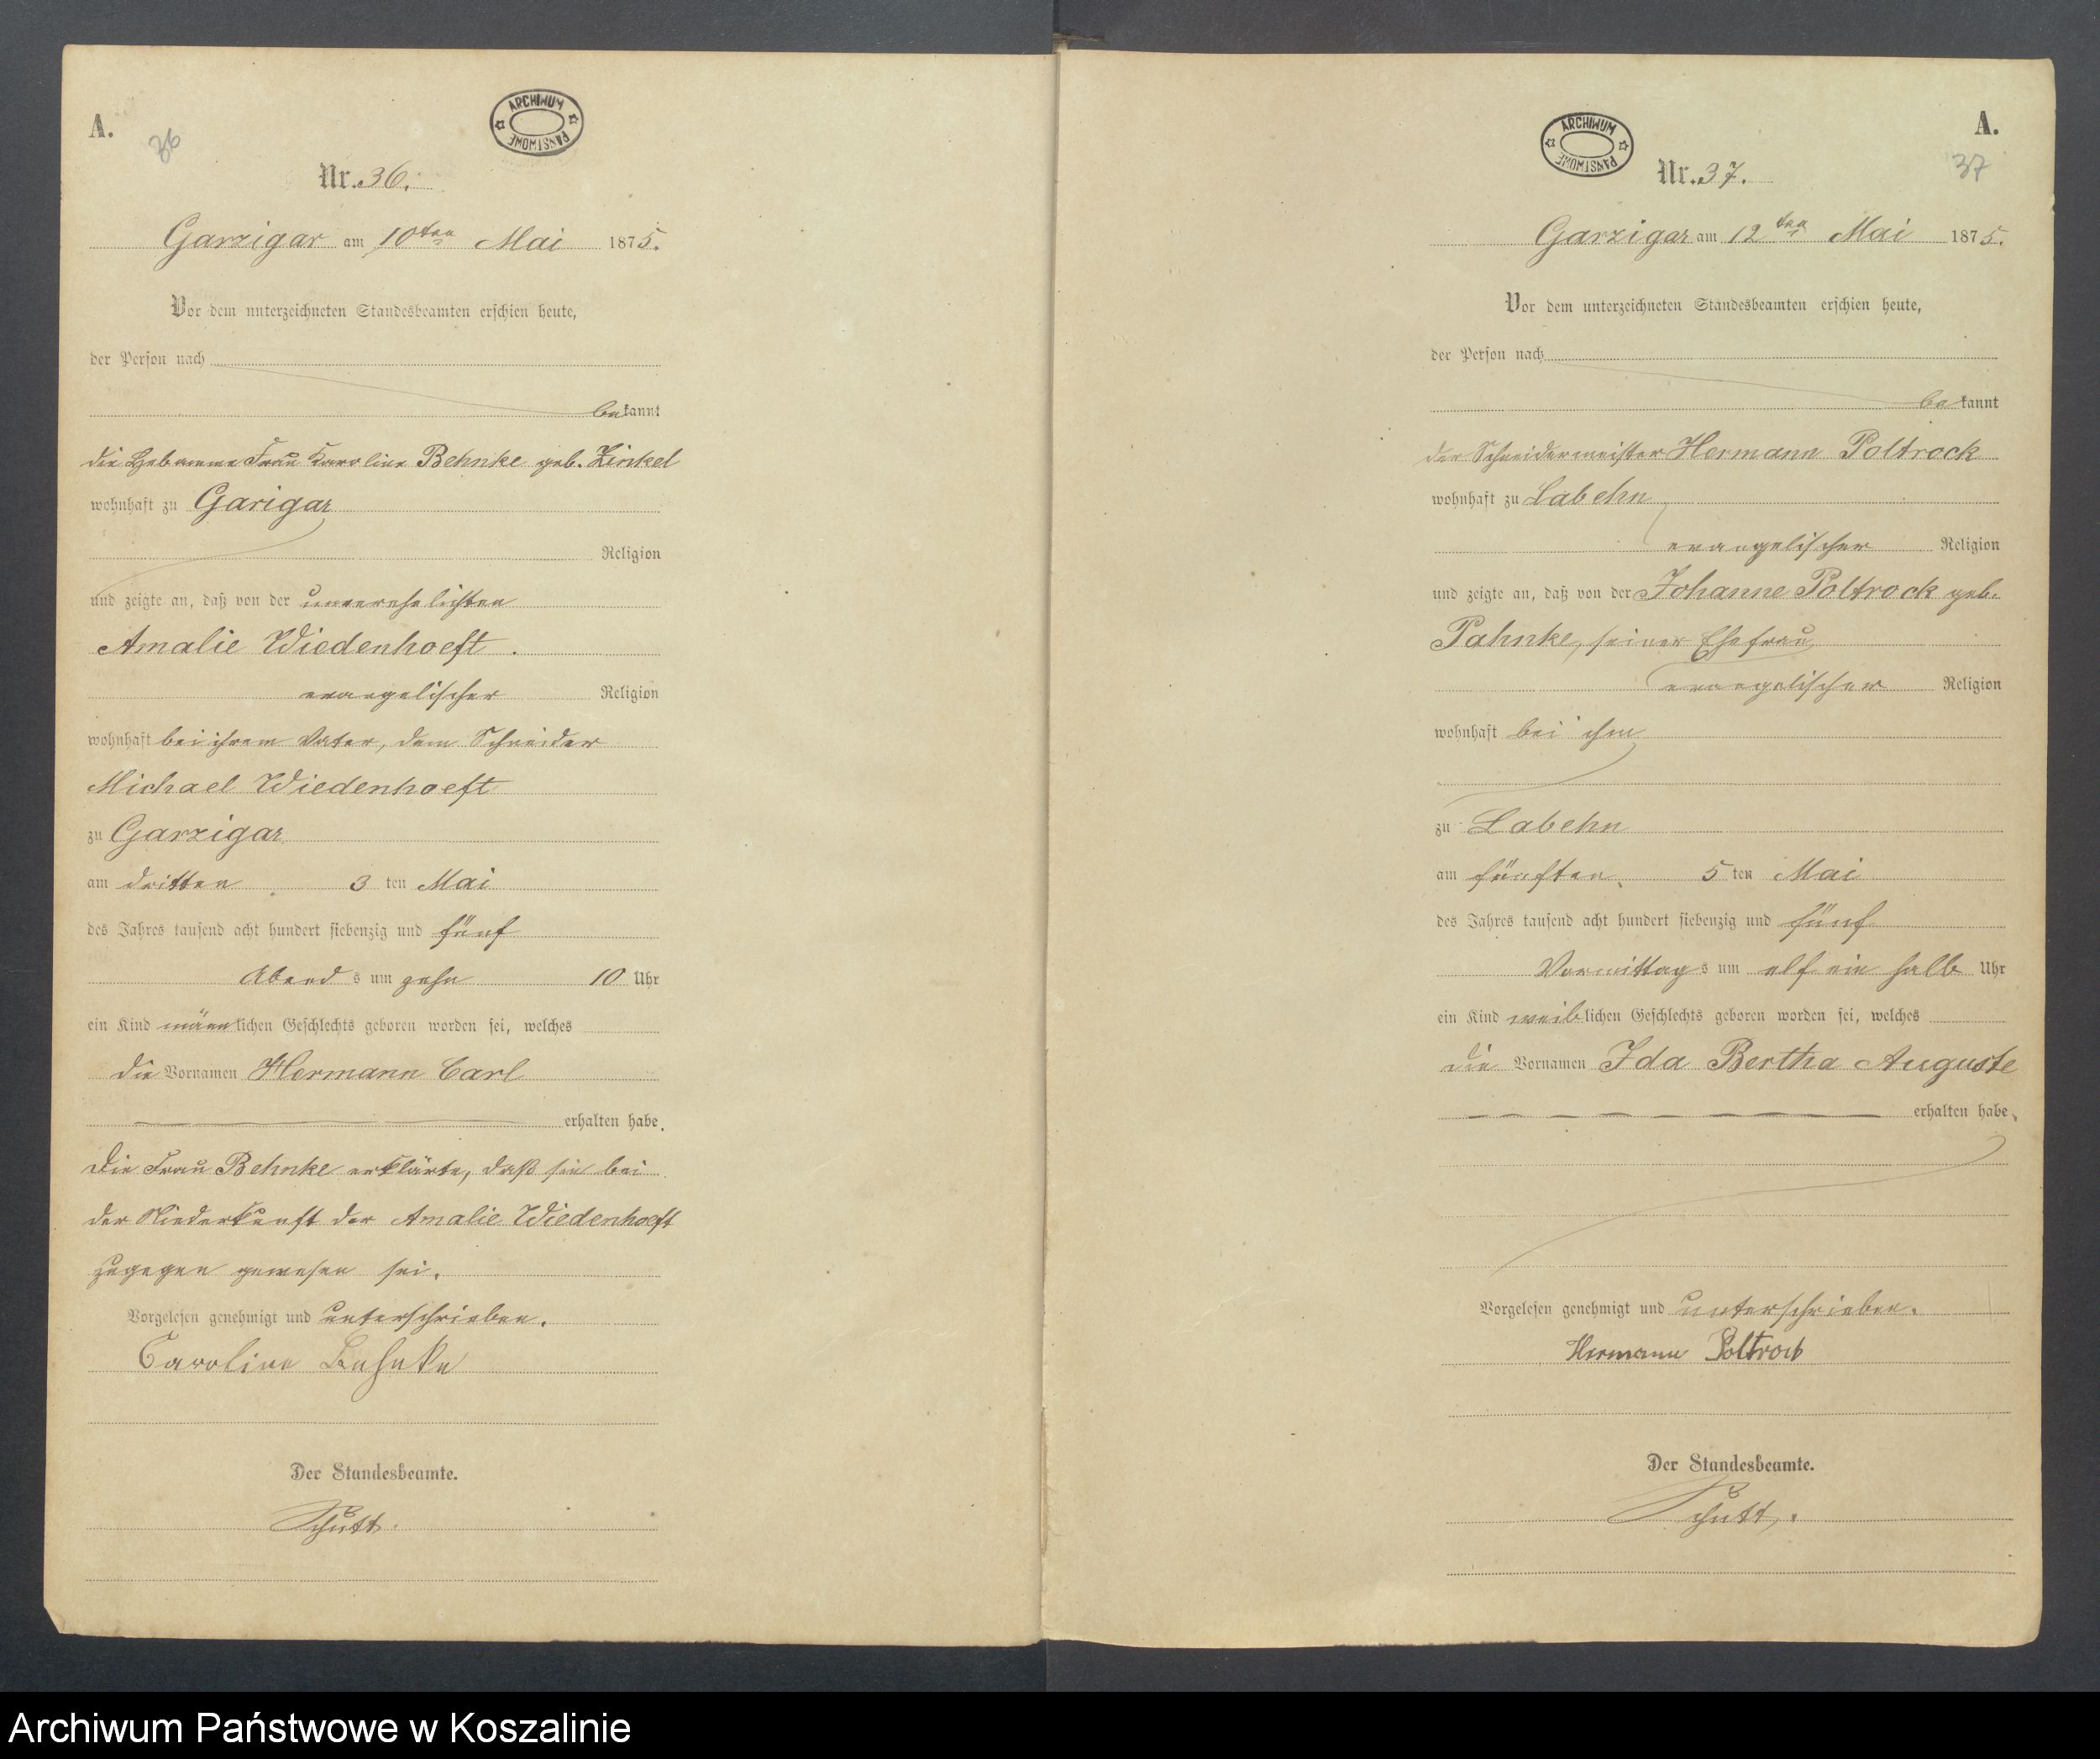 A.
36
ARCHIWUM PAŃSTWOWE
Nr. 36.
Garzigar am 10ten Mai 1875.
Vor dem unterzeichneten Standesbeamten erschien heute,
der Person nach
bekannt
die Hebamme Frau Karoline Behnke geb. Zinkel
wohnhaft zu Garigar
Religion
und zeigte an, daß von der unverehelichten
Amalie Wiedenhoeft.
evangelischer Religion
wohnhaft bei ihrem Vater, dem Schneider
Michael Wiedenhoeft
zu Garzigar
am dritten 3 ten Mai
des Jahres tausend acht hundert siebenzig und fünf
Abends um zehn 10 Uhr
ein Kind männlichen Geschlechts geboren worden sei, welches
die Vornamen Hermann Carl
erhalten habe.
Die Frau Behnke erklärte, daß sie bei
der Niederkunft der Amalie Wiedenhoeft
zugegen gewesen sei.
Vorgelesen genehmigt und unterschrieben.
Caroline Behnke
Der Standesbeamte.
Schütt.
A.
37
ARCHIWUM PAŃSTWOWE
Nr. 37.
Garzigar am 12ten Mai 1875.
Vor dem unterzeichneten Standesbeamten erschien heute,
der Person nach
bekannt
der Schneidermeister Hermann Poltrock
wohnhaft zu Labehn
evangelischer Religion
und zeigte an, daß von der Johanne Poltrock geb.
Pahnke, seiner Ehefrau
evangelischer Religion
wohnhaft bei ihm
zu Labehn
am fünften 5 ten Mai
des Jahres tausend acht hundert siebenzig und fünf
Vormittags um elf ein halb Uhr
ein Kind weiblichen Geschlechts geboren worden sei, welches
die Vornamen Ida Bertha Auguste
erhalten habe.
Vorgelesen genehmigt und unterschrieben.
Hermann Poltrock
Der Standesbeamte.
Schütt.
Archiwum Państwowe w Koszalinie